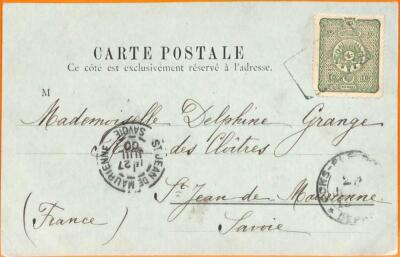 CARTE POSTALE
Ce côté est exclusivement réservé à l'adresse.
M
Mademoiselle Delphine Grange
des Cloîtres
St Jean de Maurienne
(France)
Savoie
ST JEAN DE MAURIENNE
SAVOIE
27
JUIL
00
10